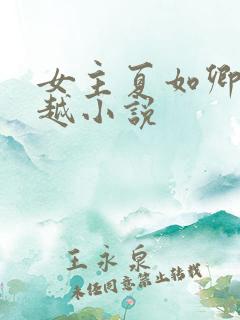 女主夏如卿
越小说
王永泉
未经同意禁止转载